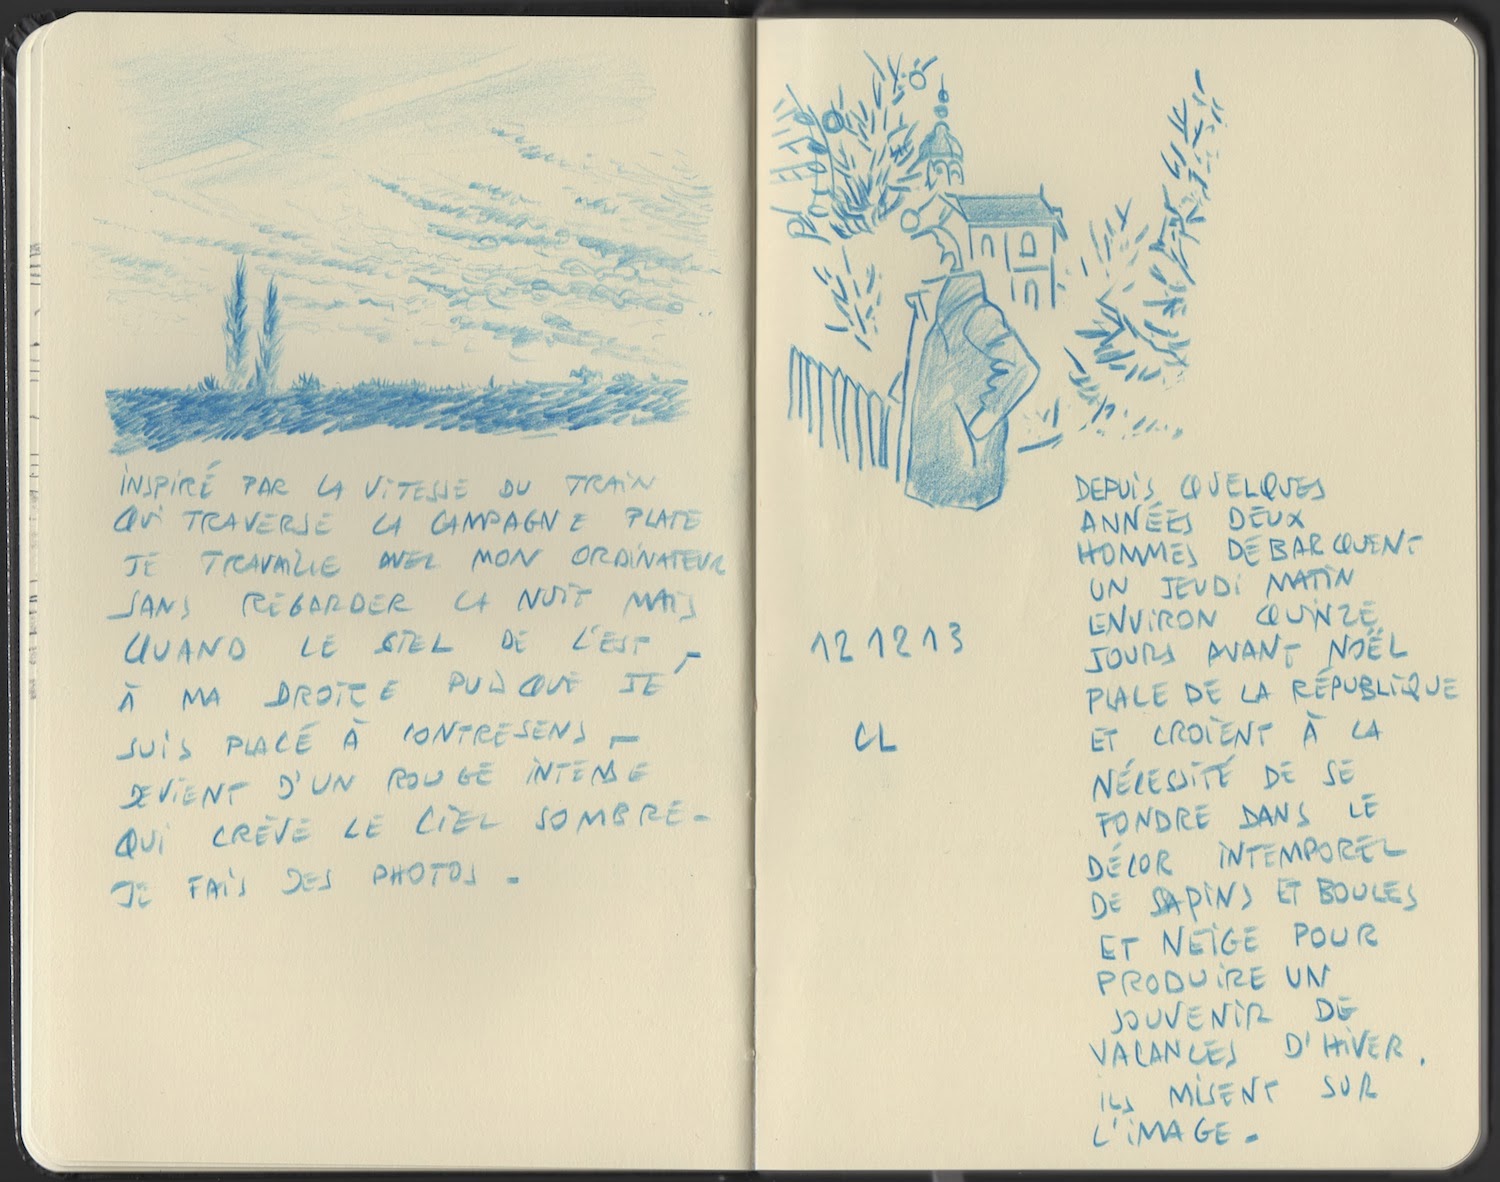 INSPIRÉ PAR LA VITESSE DU TRAIN
QUI TRAVERSE LA CAMPAGNE PLATE
JE TRAVAILLE AVEC MON ORDINATEUR
SANS REGARDER LA NUIT MAIS
QUAND LE CIEL DE L'EST,
À MA DROITE PUISQUE JE
SUIS PLACÉ À CONTRESENS,
DEVIENT D'UN ROUGE INTENSE
QUI CRÈVE LE CIEL SOMBRE.
JE FAIS DES PHOTOS.
121213
CL
DEPUIS QUELQUES
ANNÉES DEUX
HOMMES DÉBARQUENT
UN JEUDI MATIN
ENVIRON QUINZE
JOURS AVANT NOËL
PLACE DE LA RÉPUBLIQUE
ET CROIENT À LA
NÉCESSITÉ DE SE
FONDRE DANS LE
DÉCOR INTEMPOREL
DE SAPINS ET BOULES
ET NEIGE POUR
PRODUIRE UN
SOUVENIR DE
VACANCES D'HIVER.
ILS MISENT SUR
L'IMAGE.